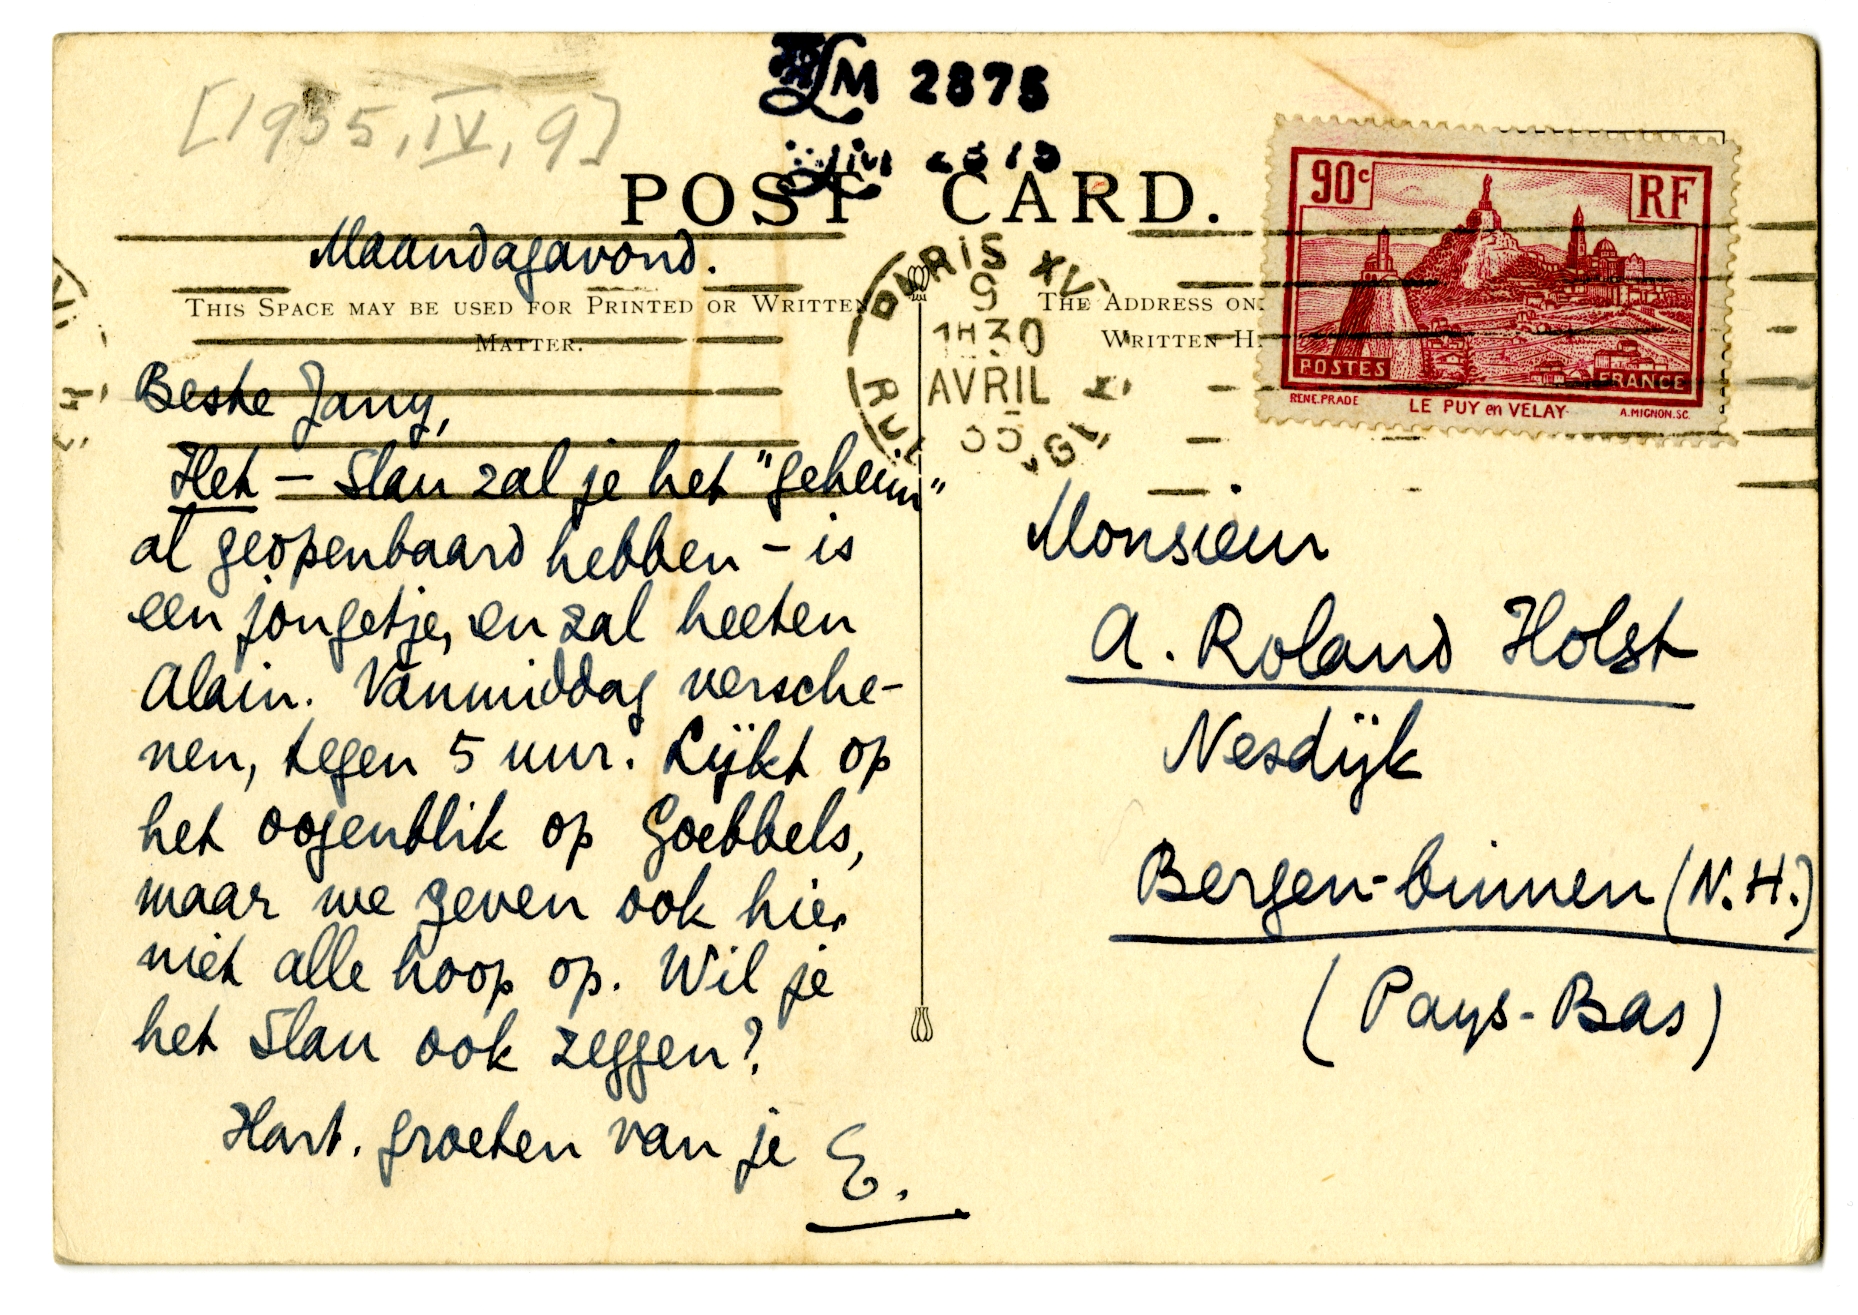 [1935, IV, 9]
LM 2875
POST CARD.
Maandagavond.
THIS SPACE MAY BE USED FOR PRINTED OR WRITTEN
MATTER.
Beste Jany,
Het – Slau zal je het "geheim"
al geopenbaard hebben – is
een jongetje, en zal heeten
Alain. Vanmiddag versche-
nen, tegen 5 uur. Lijkt op
het oogenblik op Goebbels,
maar we geven ook hier
niet alle hoop op. Wil je
het Slau ook zeggen?
Hart. groeten van je
E.
PARIS XVI
9
1H30
AVRIL
35
RUE
THE ADDRESS ON
WRITTEN H
90c
RF
POSTES
FRANCE
RENE.PRADE
LE PUY en VELAY
A.MIGNON.SC.
Monsieur
A. Roland Holst
Nesdijk
Bergen-binnen (N.H.)
(Pays-Bas)